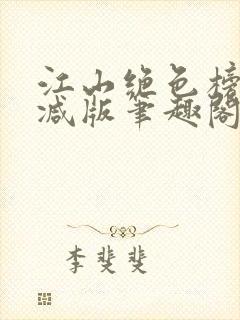 江山绝色榜
减版笔趣阁
李斐斐